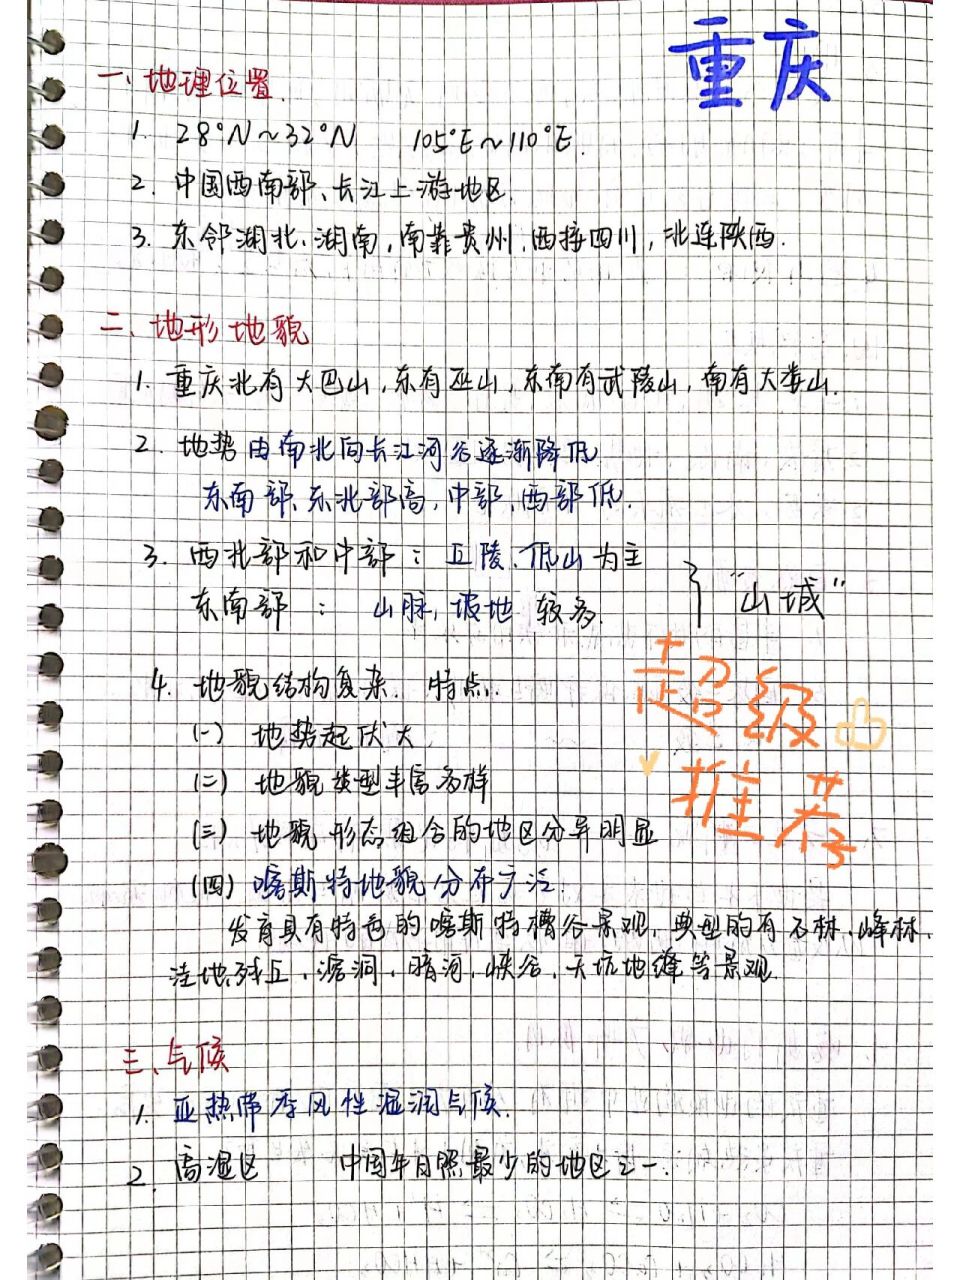 重庆
一、地理位置.
1. 28°N~32°N 105°E~110°E.
2. 中国西南部、长江上游地区.
3. 东邻湖北、湖南,南靠贵州,西接四川,北连陕西.
二、地形地貌
1. 重庆北有大巴山,东有巫山,东南有武陵山,南有大娄山.
2. 地势由南北向长江河谷逐渐降低
东南部、东北部高,中部、西部低.
3. 西北部和中部:丘陵、低山为主
东南部:山脉,坡地较多.
"山城"
超级
推荐
4. 地貌结构复杂. 特点.
(一) 地势起伏大
(二) 地貌类型丰富多样
(三) 地貌形态组合的地区分异明显
(四) 喀斯特地貌分布广泛.
发育具有特色的喀斯特槽谷景观,典型的有石林、峰林、
洼地、残丘、溶洞、暗河、峡谷、天坑地缝等景观.
三、气候
1. 亚热带季风性湿润气候.
2. 高湿区 中国年日照最少的地区之一.